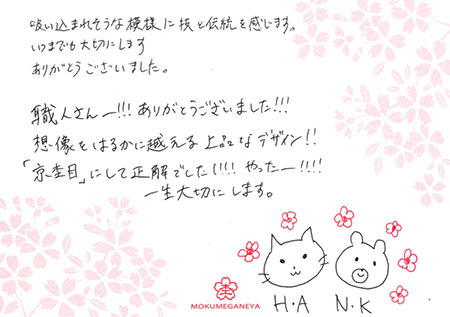 吸い込まれそうな模様に技と伝統を感じます。
いつまでも大切にします
ありがとうございました。
職人さんー!!! ありがとうございました!!!
想像をはるかに越える上品なデザイン!!
「京杢目」にして正解でした!!!! やったー!!!!
一生大切にします。
MOKUMEGANEYA
H・A N・K